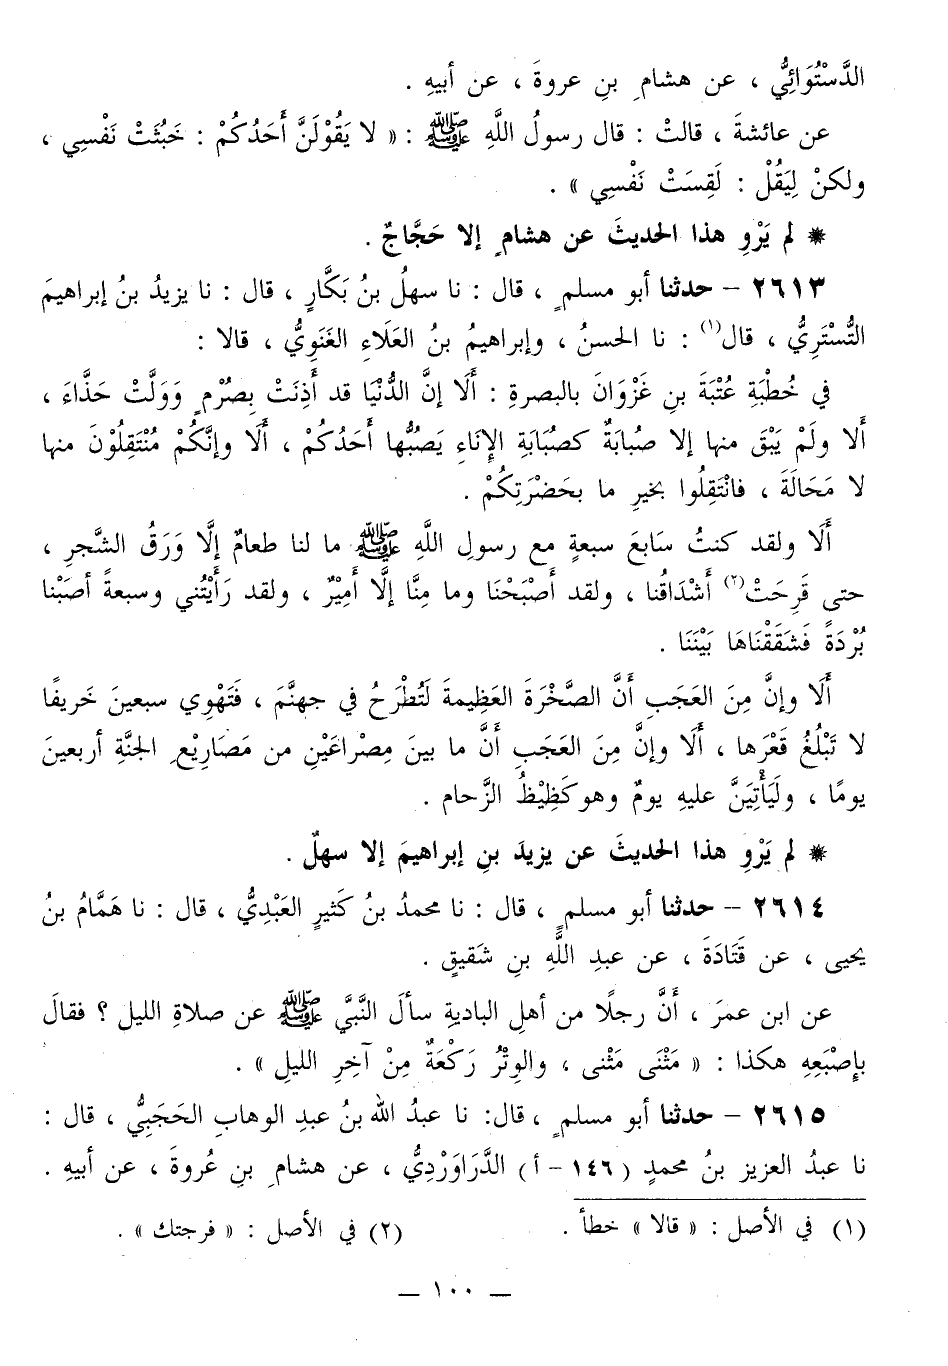 الدَّسْتُوَائِيُّ ، عن هشامِ بنِ عروةَ ، عن أبيهِ .
عن عائشةَ ، قالتْ : قال رسولُ اللَّهِ ﷺ : « لا يَقُوْلَنَّ أَحَدُكُمْ : خَبُثَتْ نَفْسِي ،
ولكنْ لِيَقُلْ : لَقِسَتْ نَفْسِي » .
* لم يَرْوِ هذا الحديثَ عن هشامٍ إلا حَجَّاجٌ .
٢٦١٣ – حدثنا أبو مسلمٍ ، قال : نا سهلُ بنُ بَكَّارٍ ، قال : نا يزيدُ بنُ إبراهيمَ
التُّسْتَرِيُّ ، قال(١) : نا الحسنُ ، وإبراهيمُ بنُ العَلَاءِ الغَنَوِيُّ ، قالا :
في خُطْبَةِ عُتْبَةَ بنِ غَزْوَانَ بالبصرةِ : أَلَا إنَّ الدُّنْيَا قد أَذِنَتْ بِصُرْمٍ وَوَلَّتْ حَذَّاءَ ،
أَلا ولَمْ يَبْقَ منها إلا صُبابَةٌ كصُبَابَةِ الإنَاءِ يَصُبُّها أَحَدُكُمْ ، أَلَا وإنَّكُمْ مُنْتَقِلُوْنَ منها
لا مَحَالَةَ ، فانْتَقِلُوا بخيرِ ما بحَضْرَتِكُمْ .
أَلَا ولقد كنتُ سَابِعَ سبعةٍ مع رسولِ اللَّهِ ﷺ ما لنا طعامٌ إلَّا وَرَقُ الشَّجرِ ،
حتى قَرِحَتْ(٢) أَشْدَاقُنا ، ولقد أَصْبَحْنَا وما مِنَّا إلَّا أَمِيْرٌ ، ولقد رَأَيْتُني وسبعةً أصَبْنا
بُرْدَةً فَشَقَقْنَاهَا بَيْنَنَا .
أَلَا وإنَّ مِنَ العَجَبِ أَنَّ الصَّخْرَةَ العَظِيمةَ لَتُطْرَحُ في جهنَّمَ ، فَتَهْوِي سبعينَ خَريفًا
لا تَبْلُغُ قَعْرَها ، أَلَا وإنَّ مِنَ العَجَبِ أَنَّ ما بينَ مِصْرَاعَيْنِ من مَصَارِيْعِ الجنَّةِ أربعينَ
يومًا ، ولَيَأْتِيَنَّ عليهِ يومٌ وهو كَظِيْظُ الزَّحام .
* لم يَرْوِ هذا الحديثَ عن يزيدَ بنِ إبراهيمَ إلا سهلٌ .
٢٦١٤ – حدثنا أبو مسلمٍ ، قال : نا محمدُ بنُ كَثيرٍ العَبْدِيُّ ، قال : نا هَمَّامُ بنُ
يحيى ، عن قَتَادَةَ ، عن عبدِ اللَّهِ بنِ شَقيقٍ .
عن ابن عمرَ ، أَنَّ رجلًا من أهلِ الباديةِ سأَلَ النَّبيَّ ﷺ عن صلاةِ الليل ؟ فقالَ
بإِصْبَعِهِ هكذا : « مَثْنَى مَثْنى ، والوِتْرُ رَكْعَةٌ مِنْ آخِرِ الليلِ » .
٢٦١٥ – حدثنا أبو مسلمٍ ، قال: نا عبدُ الله بنُ عبدِ الوهاب الحَجَبِيُّ ، قال :
نا عبدُ العزيز بنُ محمدٍ ( ١٤٦ – أ ) الدَّرَاوَرْدِيُّ ، عن هشامِ بنِ عُروةَ ، عن أبيهِ .
(١) في الأصل : « قالا » خطأ . (٢) في الأصل : « فرجتك » .
— ١٠٠ —